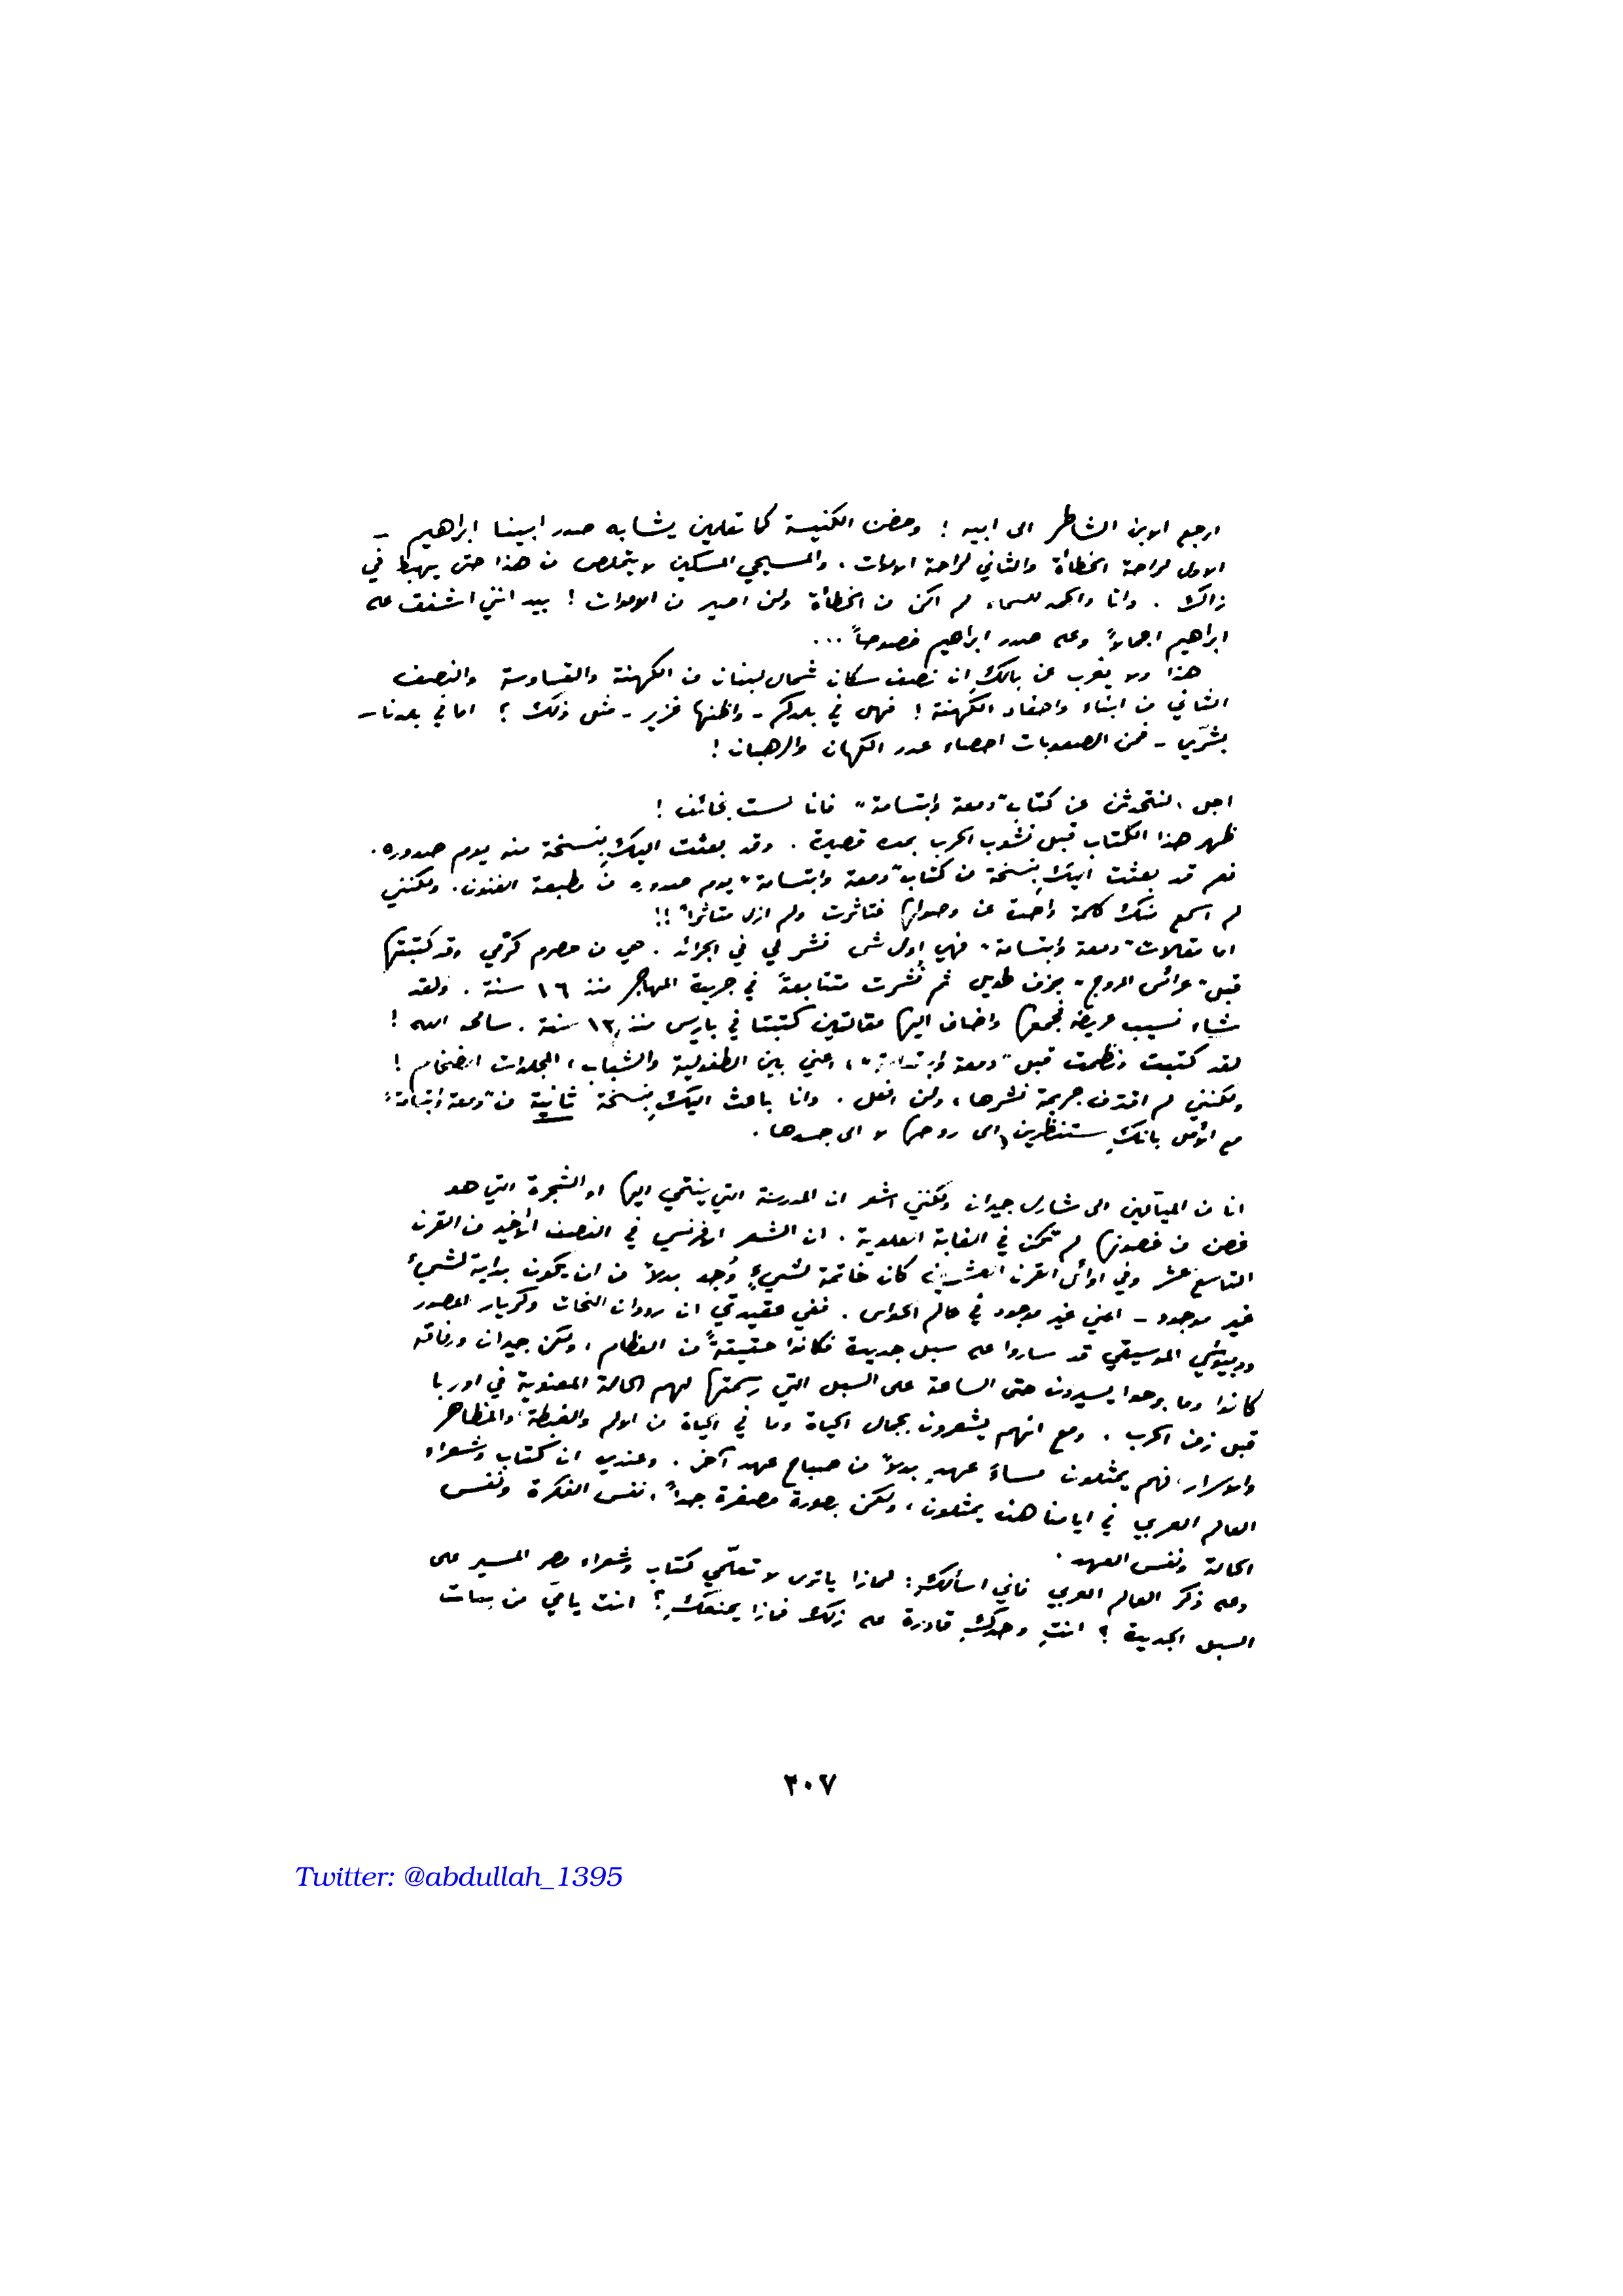 ارجع الابن الشاطر الى ابيه ! وحضن الكنيسة كما تعلمين يشابه صدر ابينا ابراهيم –
الاول لراحة الخطأة والثاني لراحة الاموات . والمسيحي المسكين لا يتخلص من هذا حتى يهبط في
ذاك . وانا والحمد للسماء لم اكن من الخطأة ولن اصير من الاموات ! بيد انني اشفق على
ابراهيم اجمالاً وعلى صدر ابراهيم خصوصاً ...
هذا ولا يغرب عن بالكِ ان نصف سكان شمال لبنان من الكهنة والقساوسة والنصف
الثاني من ابناء واحفاد الكهنة ! فهل في بلدكم - واظنها غزير - مثل ذلك ؟ اما في بلدتنا –
بشرّي - فمن الصعوبات احصاء عدد الكهان والرهبان !
اجل ، لنتحدثن عن كتاب "دمعة وابتسامة" فانا لست بخائف !
ظهر هذا الكتاب قبل نشوب الحرب بمدة قصيرة . وقد بعثت اليكِ بنسخة منه يوم صدوره .
نعم قد بعثت اليكِ بنسخة من كتاب "دمعة وابتسامة" يوم صدوره من مطبعة الفنون . ولكنني
لم اسمع منك كلمة واحدة عن وصولها فتاثرت ولم ازل متاثراً !!
اما مقالات "دمعة وابتسامة" فهي اول شي نشر لي في الجرائد . هي من حصرم كرمي وقد كتبتها
قبل "عرائس المروج" بزمن طويل ثم نُشرت متتابعةً في جريدة المهاجر منذ ١٦ سنة . ولقد
شاء نسيب عريضه فجمعها واضاف اليها مقالتين كتبتا في باريس منذ ١٢ سنة . سامحه الله !
لقد كتبت ونظمت قبل "دمعة وابتسامة" ، اعني بين الطفولية والشباب ، المجلدات الضخام !
ولكنني لم اقترف جريمة نشرها ، ولن افعل . وانا باعث اليكِ بنسخة ثانية من "دمعة وابتسامة"
مع الأمل بانكِ ستنظرين الى روحها لا الى جسدها .
انا من الميّالين الى شارل جيران ولكنني اشعر ان المدرسة التي ينتمي اليها او الشجرة التي هو
غصن من غصونها لم تكن في الغابة العلوية . ان الشعر الافرنسي في النصف الأخير من القرن
التاسع عشر وفي اوائل القرن العشرين كان خاتمة لشيءٍ وُجد بدلاً من ان يكون بداية لشيءٍ
غير موجود – اعني غير موجود في عالم الحواس . ففي عقيدتي ان رودان النحات وكريار المصور
ودبيوشي الموسيقي قد ساروا على سبل جديدة فكانوا حقيقةً من العظام ، ولكن جيران ورفاقه
كانوا وما برحوا يسيرون حتى الساعة على السبل التي رسمتها لهم الحالة المعنوية في اوربا
قبل زمن الحرب . ومع انهم يشعرون بجمال الحياة وما في الحياة من الالم والغبطة والمظاهر
والاسرار ، فهم يمثلون مساءَ عهدٍ بدلاً من صباح عهد آخر . وعندي ان كتاب وشعراء
العالم العربي في ايامنا هذه يمثلون ، ولكن بصورة مصغرة جداً ، نفس الفكرة ونفس
الحالة ونفس العهد .
وعلى ذكر العالم العربي فاني اسألكِ : لماذا يا ترى لا تعلّمي كتاب وشعراء مصر المسير على
السبل الجديدة ؟ انتِ وحدكِ قادرة على ذلك فماذا يمنعكِ ؟ انت يا ميّ من بنات
٢٠٧
Twitter: @abdullah_1395